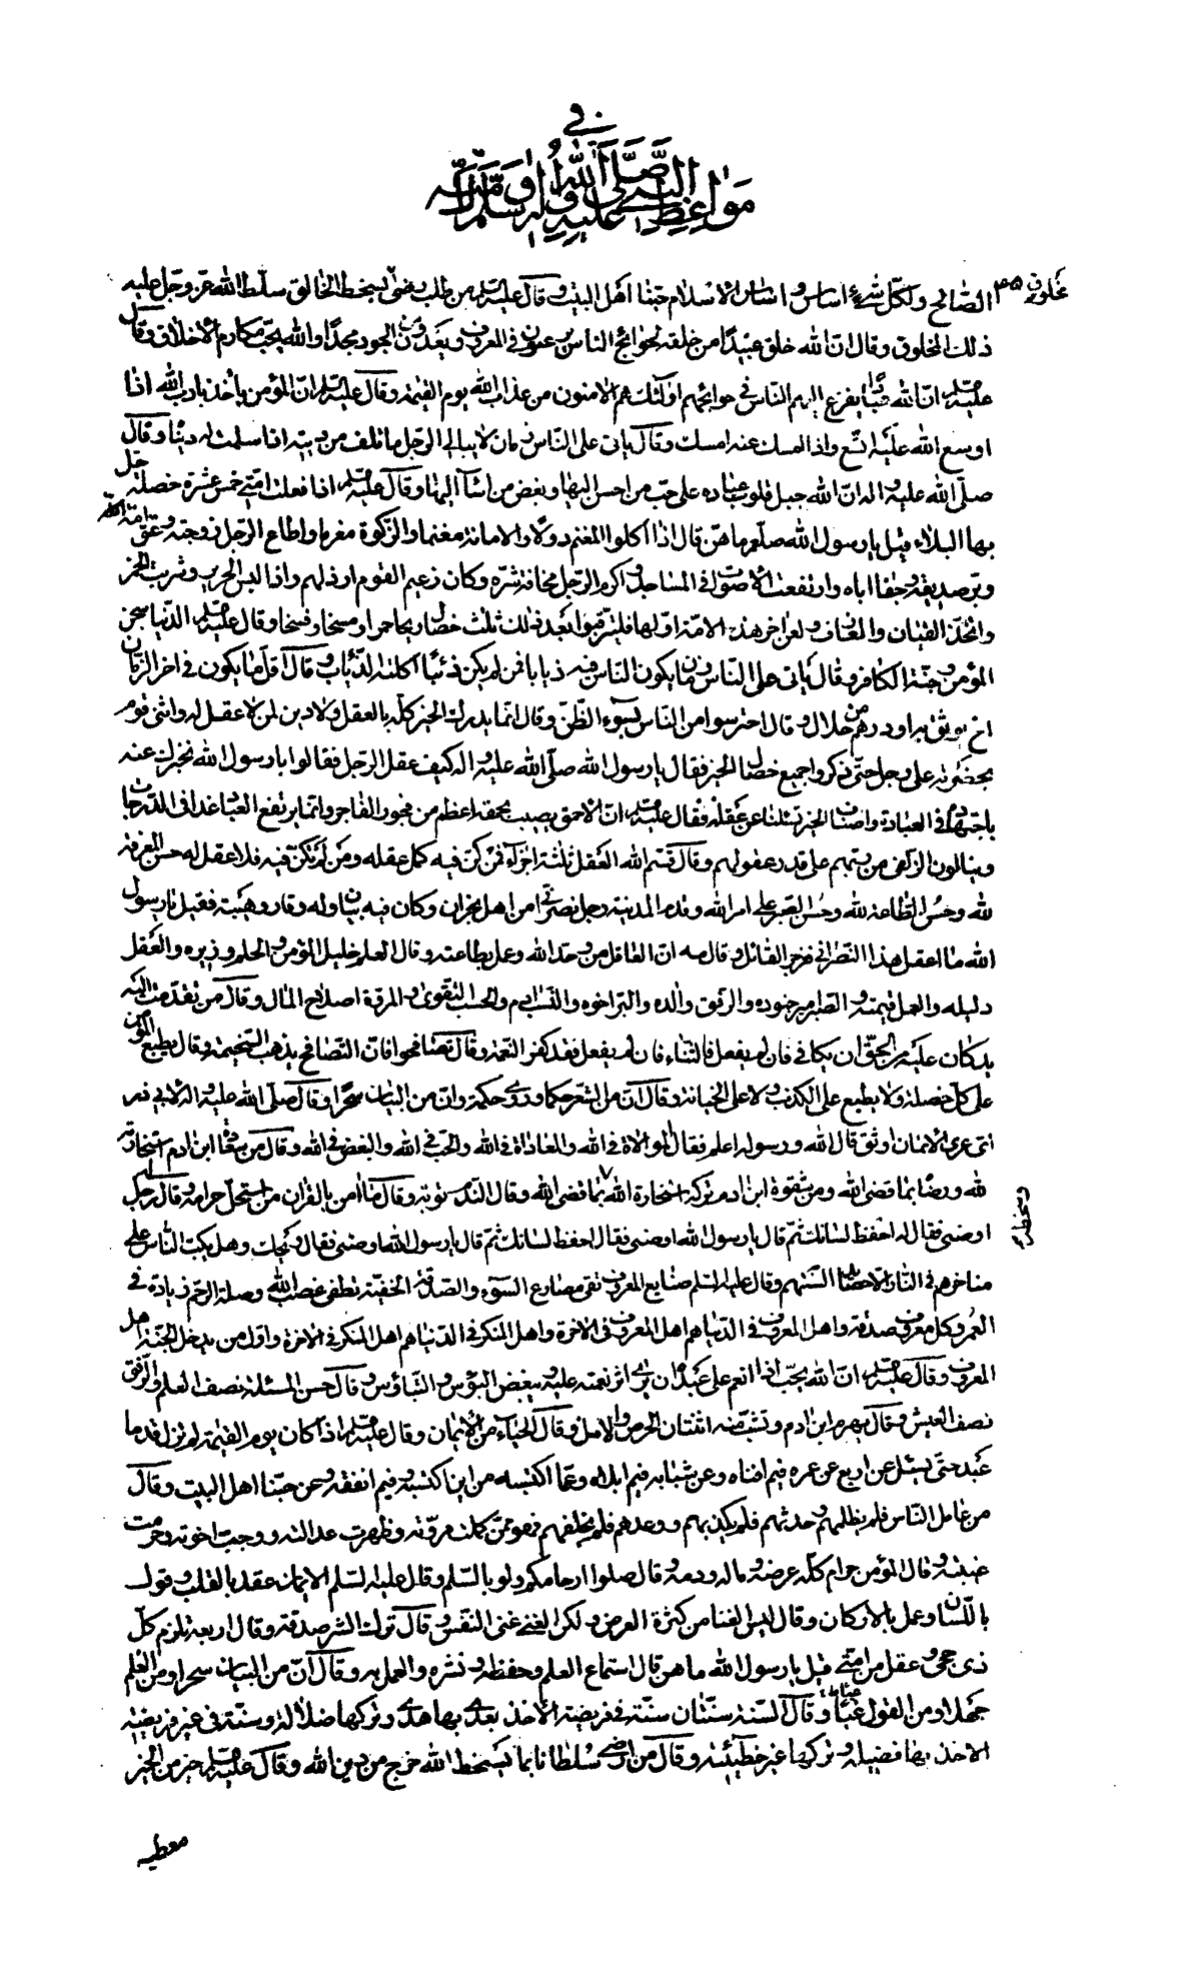 في
مواعظ النبي صلى الله عليه واله وسلم
الصالح ولكل شيء اساس واساس الاسلام حبنا اهل البيت وقال عليه السلم من طلب رضى مخلوق بسخط الخالق سلط الله عز وجل عليه
ذلك المخلوق وقال ان الله خلق عبيدا من خلقه لحوائج الناس يرغبون في المعروف ويعدون الجود مجدا والله يحب مكارم الاخلاق وقال
صلعم ان لله عبادا يفزع اليهم الناس في حوائجهم اولئك هم الامنون من عذاب الله يوم القيمة وقال عليه السلم ان المؤمن يأخذ بادب الله اذا
اوسع الله عليه اتسع واذا امسك عنه امسك وقال ياتي على الناس زمان لا يبالي الرجل ما تلف من دينه اذا سلمت له دنياه وقال
صلى الله عليه واله ان الله جبل قلوب عباده على حب من احسن اليها وبغض من اساء اليها وقال عليه السلم اذا فعلت امتي خمس عشرة خصلة حل
بها البلاء قيل يا رسول الله صلعم ما هن قال اذا اكلوا المغنم دولا والامانة مغنما والزكوة مغرما واطاع الرجل زوجته وعق امه
وبر صديقه وجفا اباه وارتفعت الاصوات في المساجد واكرم الرجل مخافة شره وكان زعيم القوم ارذلهم واذا لبس الحرير وشربت الخمر
واتخذ القيان والمعازف ولعن اخر هذه الامة اولها فليترقبوا بعد ذلك ثلث خصال ريحا حمراء ومسخا وفسخا وقال عليه السلم الدنيا سجن
المؤمن وجنة الكافر وقال ياتي على الناس زمان يكون الناس فيه ذيابا فمن لم يكن ذئبا اكلته الذئاب وقال اقل ما يكون في اخر الزمان
اخ يوثق به او درهم من حلال وقال احترسوا من الناس بسوء الظن وقال انما يدرك الخير كله بالعقل ولا دين لمن لا عقل له واثنى قوم
بحضرته على رجل حتى ذكروا جميع خصال الخير فقال يا رسول الله صلى الله عليه واله كيف عقل الرجل فقالوا يا رسول الله نخبرك عنه
باجتهاده في العبادة واصناف الخير تسئلنا عن عقله فقال عليه السلم ان الاحمق يصيب بحمقه اعظم من فجور الفاجر وانما يرتفع العباد غدا في الدرجات
وينالون الزلفى من ربهم على قدر عقولهم وقال قسم الله العقل ثلثة اجزاء فمن كن فيه كمل عقله ومن لم تكن فيه فلا عقل له حسن المعرفة
لله وحسن الطاعة لله وحسن الصبر على امر الله وقدم المدينة رجل نصراني من اهل نجران وكان فيه بيان وله وقار وهيبة فقيل يا رسول
الله ما اعقل هذا النصراني فزجر القائل وقال مه ان العاقل من وحد الله وعمل بطاعته وقال العلم خليل المؤمن والحلم وزيره والعقل
دليله والعمل قيمته والصبر امير جنوده والرفق والده والبر اخوه والنسب ادم والحسب التقوى والمروة اصلاح المال وقال من تقدمت اليه
يد كان عليه من الحق ان يكافي فان لم يفعل فالثناء فان لم يفعل فقد كفر النعمة وقال تصافحوا فان التصافح يذهب السخيمة وقال يطبع المؤمن
على كل خصلة ولا يطبع على الكذب ولا على الخيانة وقال ان من الشعر حكما وروي حكمة وان من البيان سحرا وقال صلى الله عليه واله لابي ذر
اي عرى الايمان اوثق قال الله ورسوله اعلم فقال الموالاة في الله والمعاداة في الله والحب في الله والبغض في الله وقال من سعادة ابن ادم استخارته
لله ورضاه بما قضى الله ومن شقوة ابن ادم تركه استخارة الله وسخطه بما قضى الله وقال الندم توبة وقال ما امن بالقران من استحل حرامه وقال له رجل
اوصني فقال له احفظ لسانك ثم قال يا رسول الله اوصني فقال احفظ لسانك ثم قال يا رسول الله اوصني فقال ويحك وهل يكب الناس على
مناخرهم في النار الا حصائد السنتهم وقال عليه السلم صنايع المعروف تقي مصارع السوء والصدقة الخفية تطفئ غضب الله وصلة الرحم زيادة في
العمر وكل معروف صدقة واهل المعروف في الدنيا هم اهل المعروف في الاخرة واهل المنكر في الدنيا هم اهل المنكر في الاخرة واول من يدخل الجنة اهل
المعروف وقال عليه السلم ان الله يحب اذا انعم على عبد ان يرى اثر نعمته عليه ويبغض البؤس والتباؤس وقال حسن المسئلة نصف العلم والرفق
نصف العيش وقال يهرم ابن ادم وتشب منه اثنتان الحرص والامل وقال الحياء من الايمان وقال عليه السلم اذا كان يوم القيمة لم تزل قدما
عبد حتى يسئل عن اربع عن عمره فيم افناه وعن شبابه فيم ابلاه وعما اكتسبه من اين اكتسبه وفيم انفقه وعن حبنا اهل البيت وقال
من عامل الناس فلم يظلمهم وحدثهم فلم يكذبهم ووعدهم فلم يخلفهم فهو ممن كملت مروته وظهرت عدالته ووجبت اخوته وحرمت
غيبته وقال المؤمن حرام كله عرضه وماله ودمه وقال صلوا ارحامكم ولو بالسلم وقال عليه السلم الايمان عقد بالقلب وقول
باللسان وعمل بالاركان وقال ليس الغنا من كثرة العرض ولكن الغنى غنى النفس وقال ترك الشر صدقة وقال اربعة تلزم كل
ذي حجى وعقل من امتي قيل يا رسول الله ما هن قال استماع العلم وحفظه ونشره والعمل به وقال ان من البيان سحرا ومن العلم
جهلا ومن القول عيا وقال السنة سنتان سنة في فريضة الاخذ بعدي بها هدى وتركها ضلالة وسنة في غير فريضة
الاخذ بها فضيلة وتركها غير خطيئة وقال من ارضى سلطانا بما يسخط الله خرج من دين الله وقال عليه السلم خير من الخير
معطيه